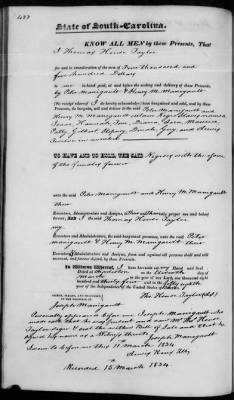 State of South-Carolina.
KNOW ALL MEN by these Presents, That
I Thomas House Taylor
for and in consideration of the sum of Four thousand and
five hundred Dollars
to me in hand paid, at and before the sealing and delivery of these Presents,
by Peter Manigault & Henry M. Manigault
(the receipt whereof I do hereby acknowledge) have bargained and sold, and by these
Presents, do bargain, sell and deliver to the said Peter Manigault and
Henry M. Manigault certain Negro Slaves names
Isaac, Hannah, Tom,
Patty, Gilbert
TO HAVE AND TO HOLD, THE SAID Negroes with the
of the females
unto the said Peter Manigault and Henry M. Manigault
their
Executors, Administrators and Assigns, to their proper use and behoof
forever. And I the said Thomas House Taylor
my
Executors and Administrators, the said bargained premises, unto the said Peter
Manigault & Henry M. Manigault their
Executors, Administrators and Assigns, from and against all persons shall and will
warrant, and forever defend by these Presents.
In Witness Whereof, I have hereunto set my Hand and Seal
Dated at Charleston on the Eleventh day of
March in the year of our Lord, one thousand eight hundred
and thirty four and in the fifty eighth
year of the Independence of the United States of America.
SIGNED, SEALED, AND DELIVERED
IN THE PRESENCE OF
Tho. House Taylor (LS)
Joseph Manigault
Personally appeared before me Joseph Manigault who
made oath that he was present and saw the Tho. House
Taylor sign & seal the within Bill of Sale and that he
signed his name as a witness thereto
Joseph Manigault
Sworn to before me this 11 March 1834
Recorded 15 March 1834